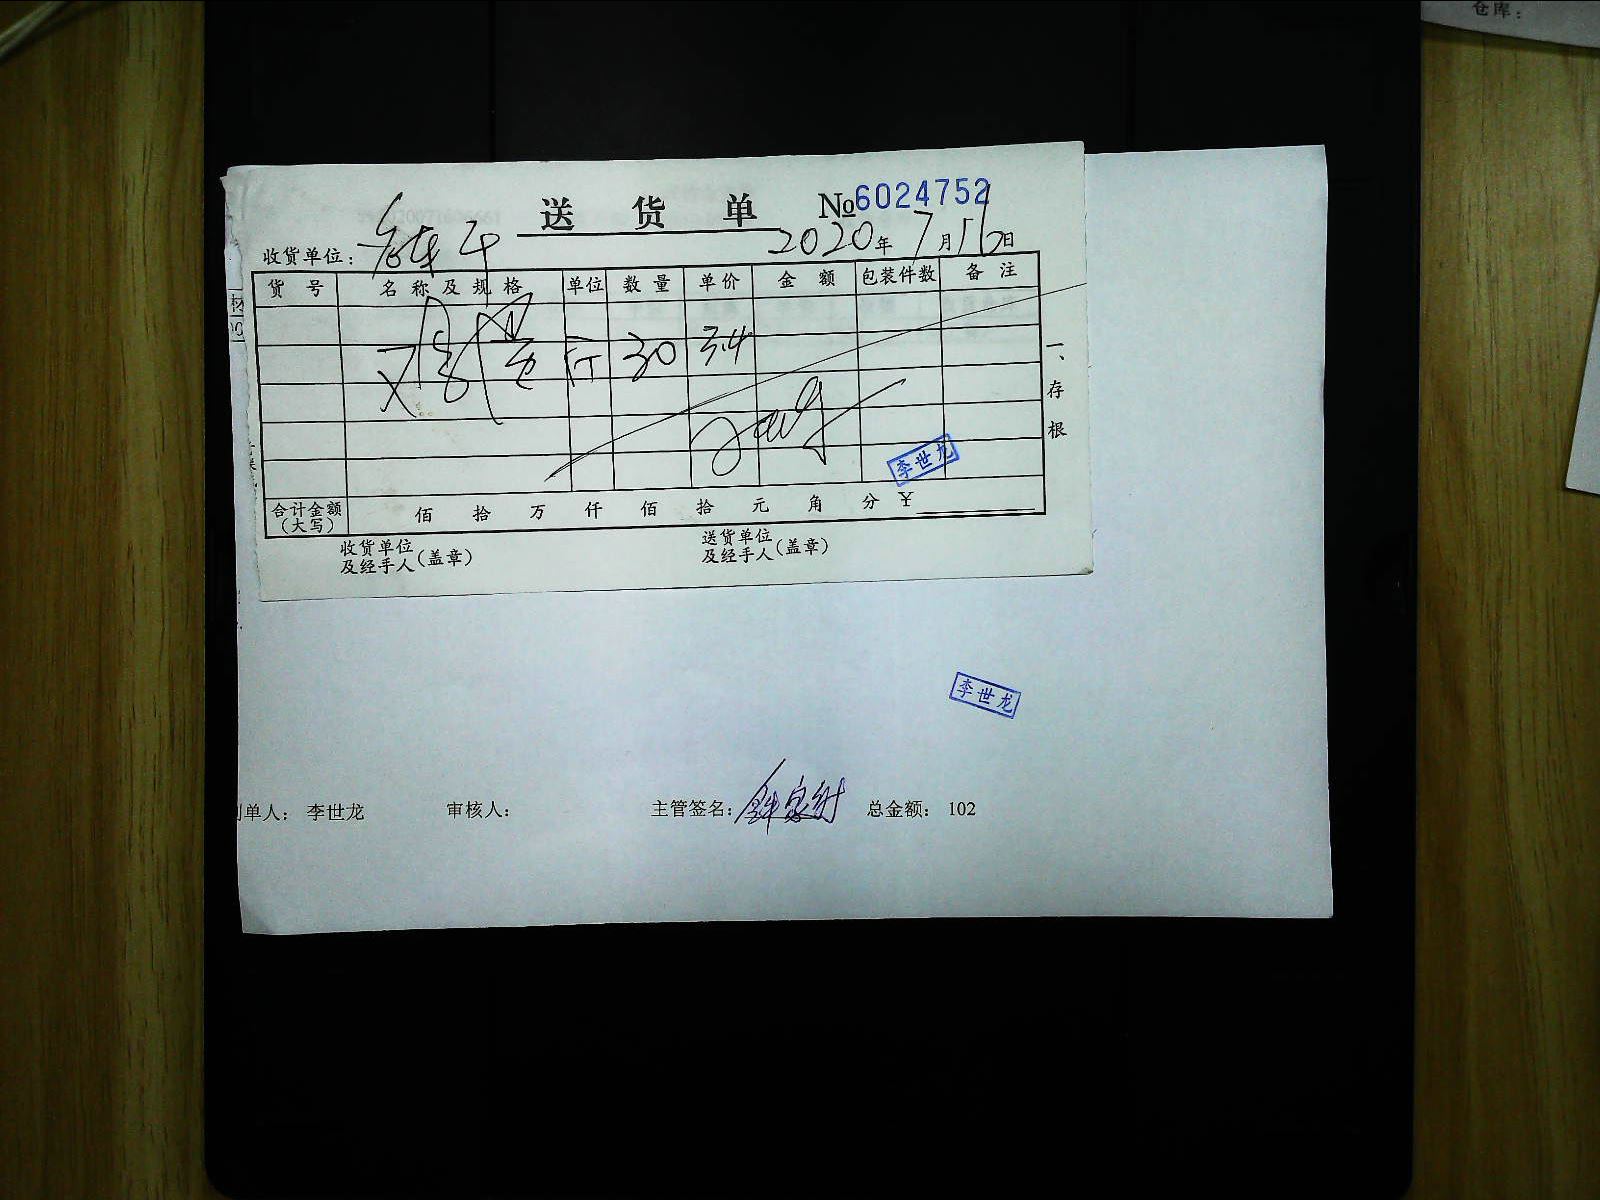 仓库：
送货单 №6024752
收货单位：
2020年7月16日
货号 名称及规格 单位 数量 单价 金额 包装件数 备注
鸡蛋 斤 30 3.4
一、存根
李世龙
合计金额（大写） 佰 拾 万 仟 佰 拾 元 角 分 ¥
收货单位及经手人（盖章） 送货单位及经手人（盖章）
李世龙
制单人： 李世龙 审核人： 主管签名： 总金额： 102